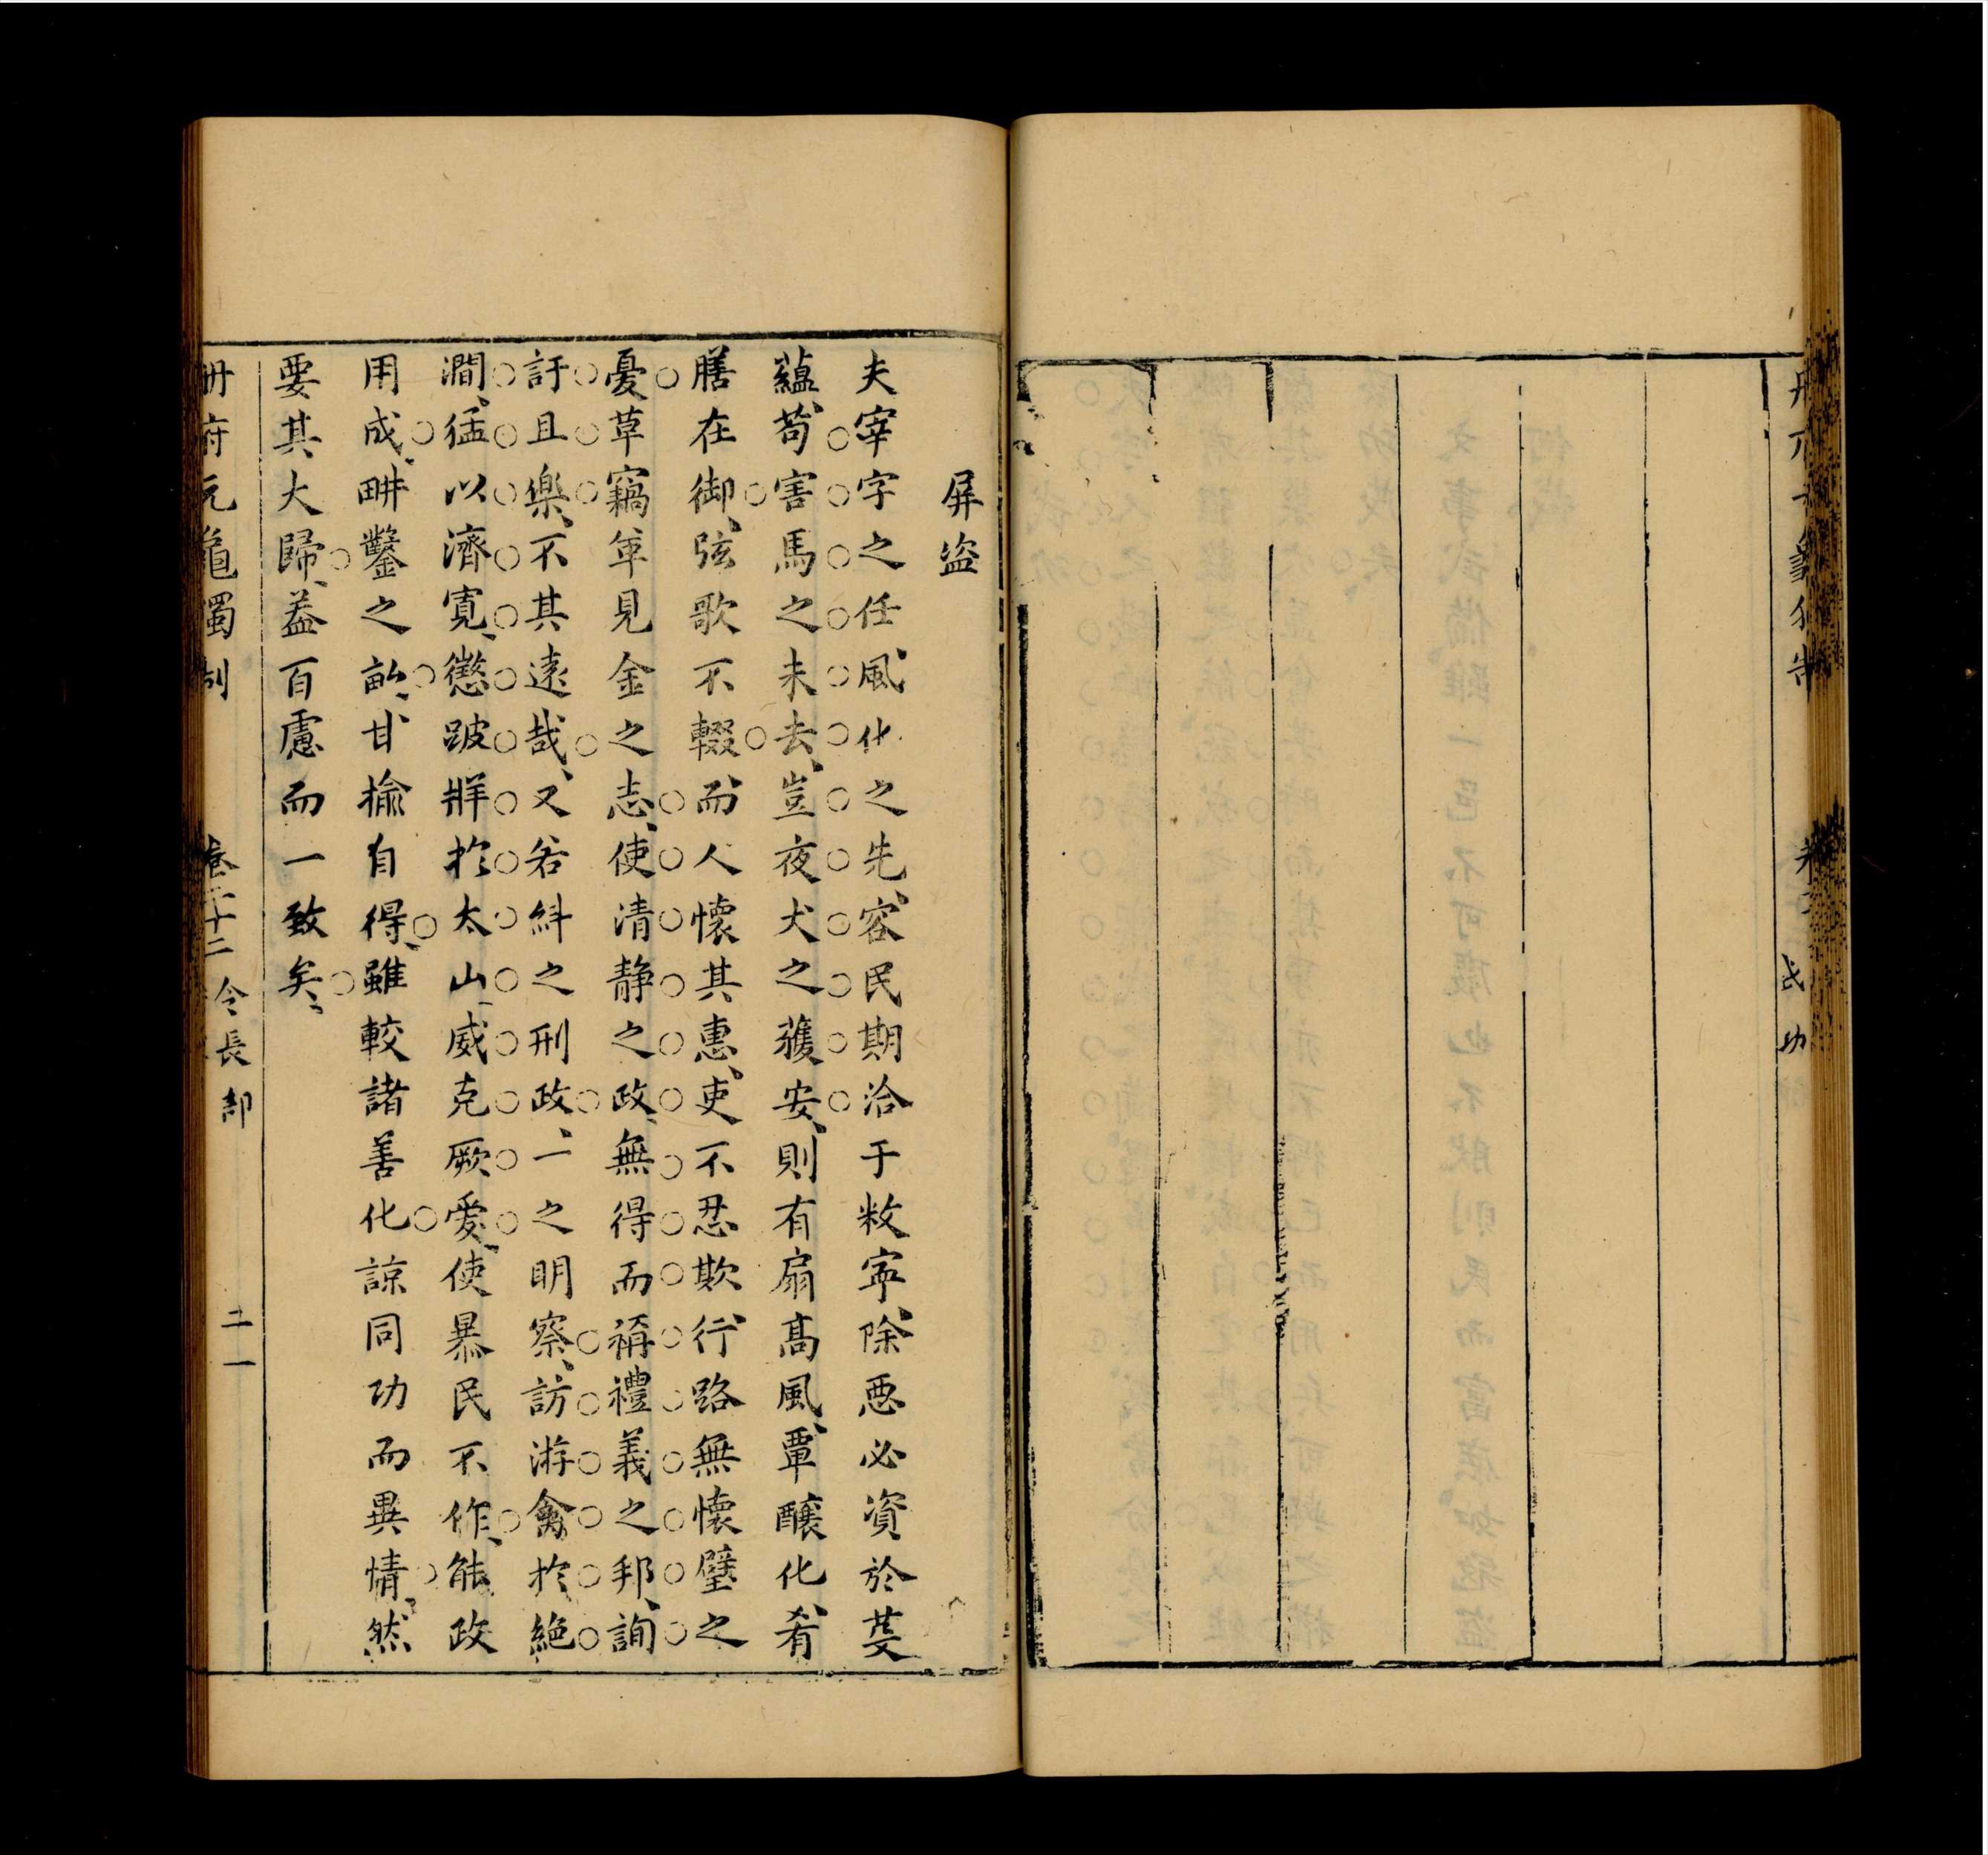 武功
屏盜
夫宰字之任風化之先容民期洽于敉寧除惡必資於芟
蘊苟害馬之未去豈夜犬之獲安則有扇高風覃醲化肴
膳在御弦歌不輟而人懷其惠吏不忍欺行路無懷璧之
憂草竊年見金之志使清静之政無得而稱禮義之邦詢
訏且樂不其遠哉又若糾之刑政一之明察訪游禽於絶
澗猛以濟寬懲跛牂於太山威克厥愛使暴民不作能政
用成畊鑿之畝甘揄自得雖較諸善化諒同功而異情然
要其大歸葢百慮而一致矣
冊府元龜獨制 令長部